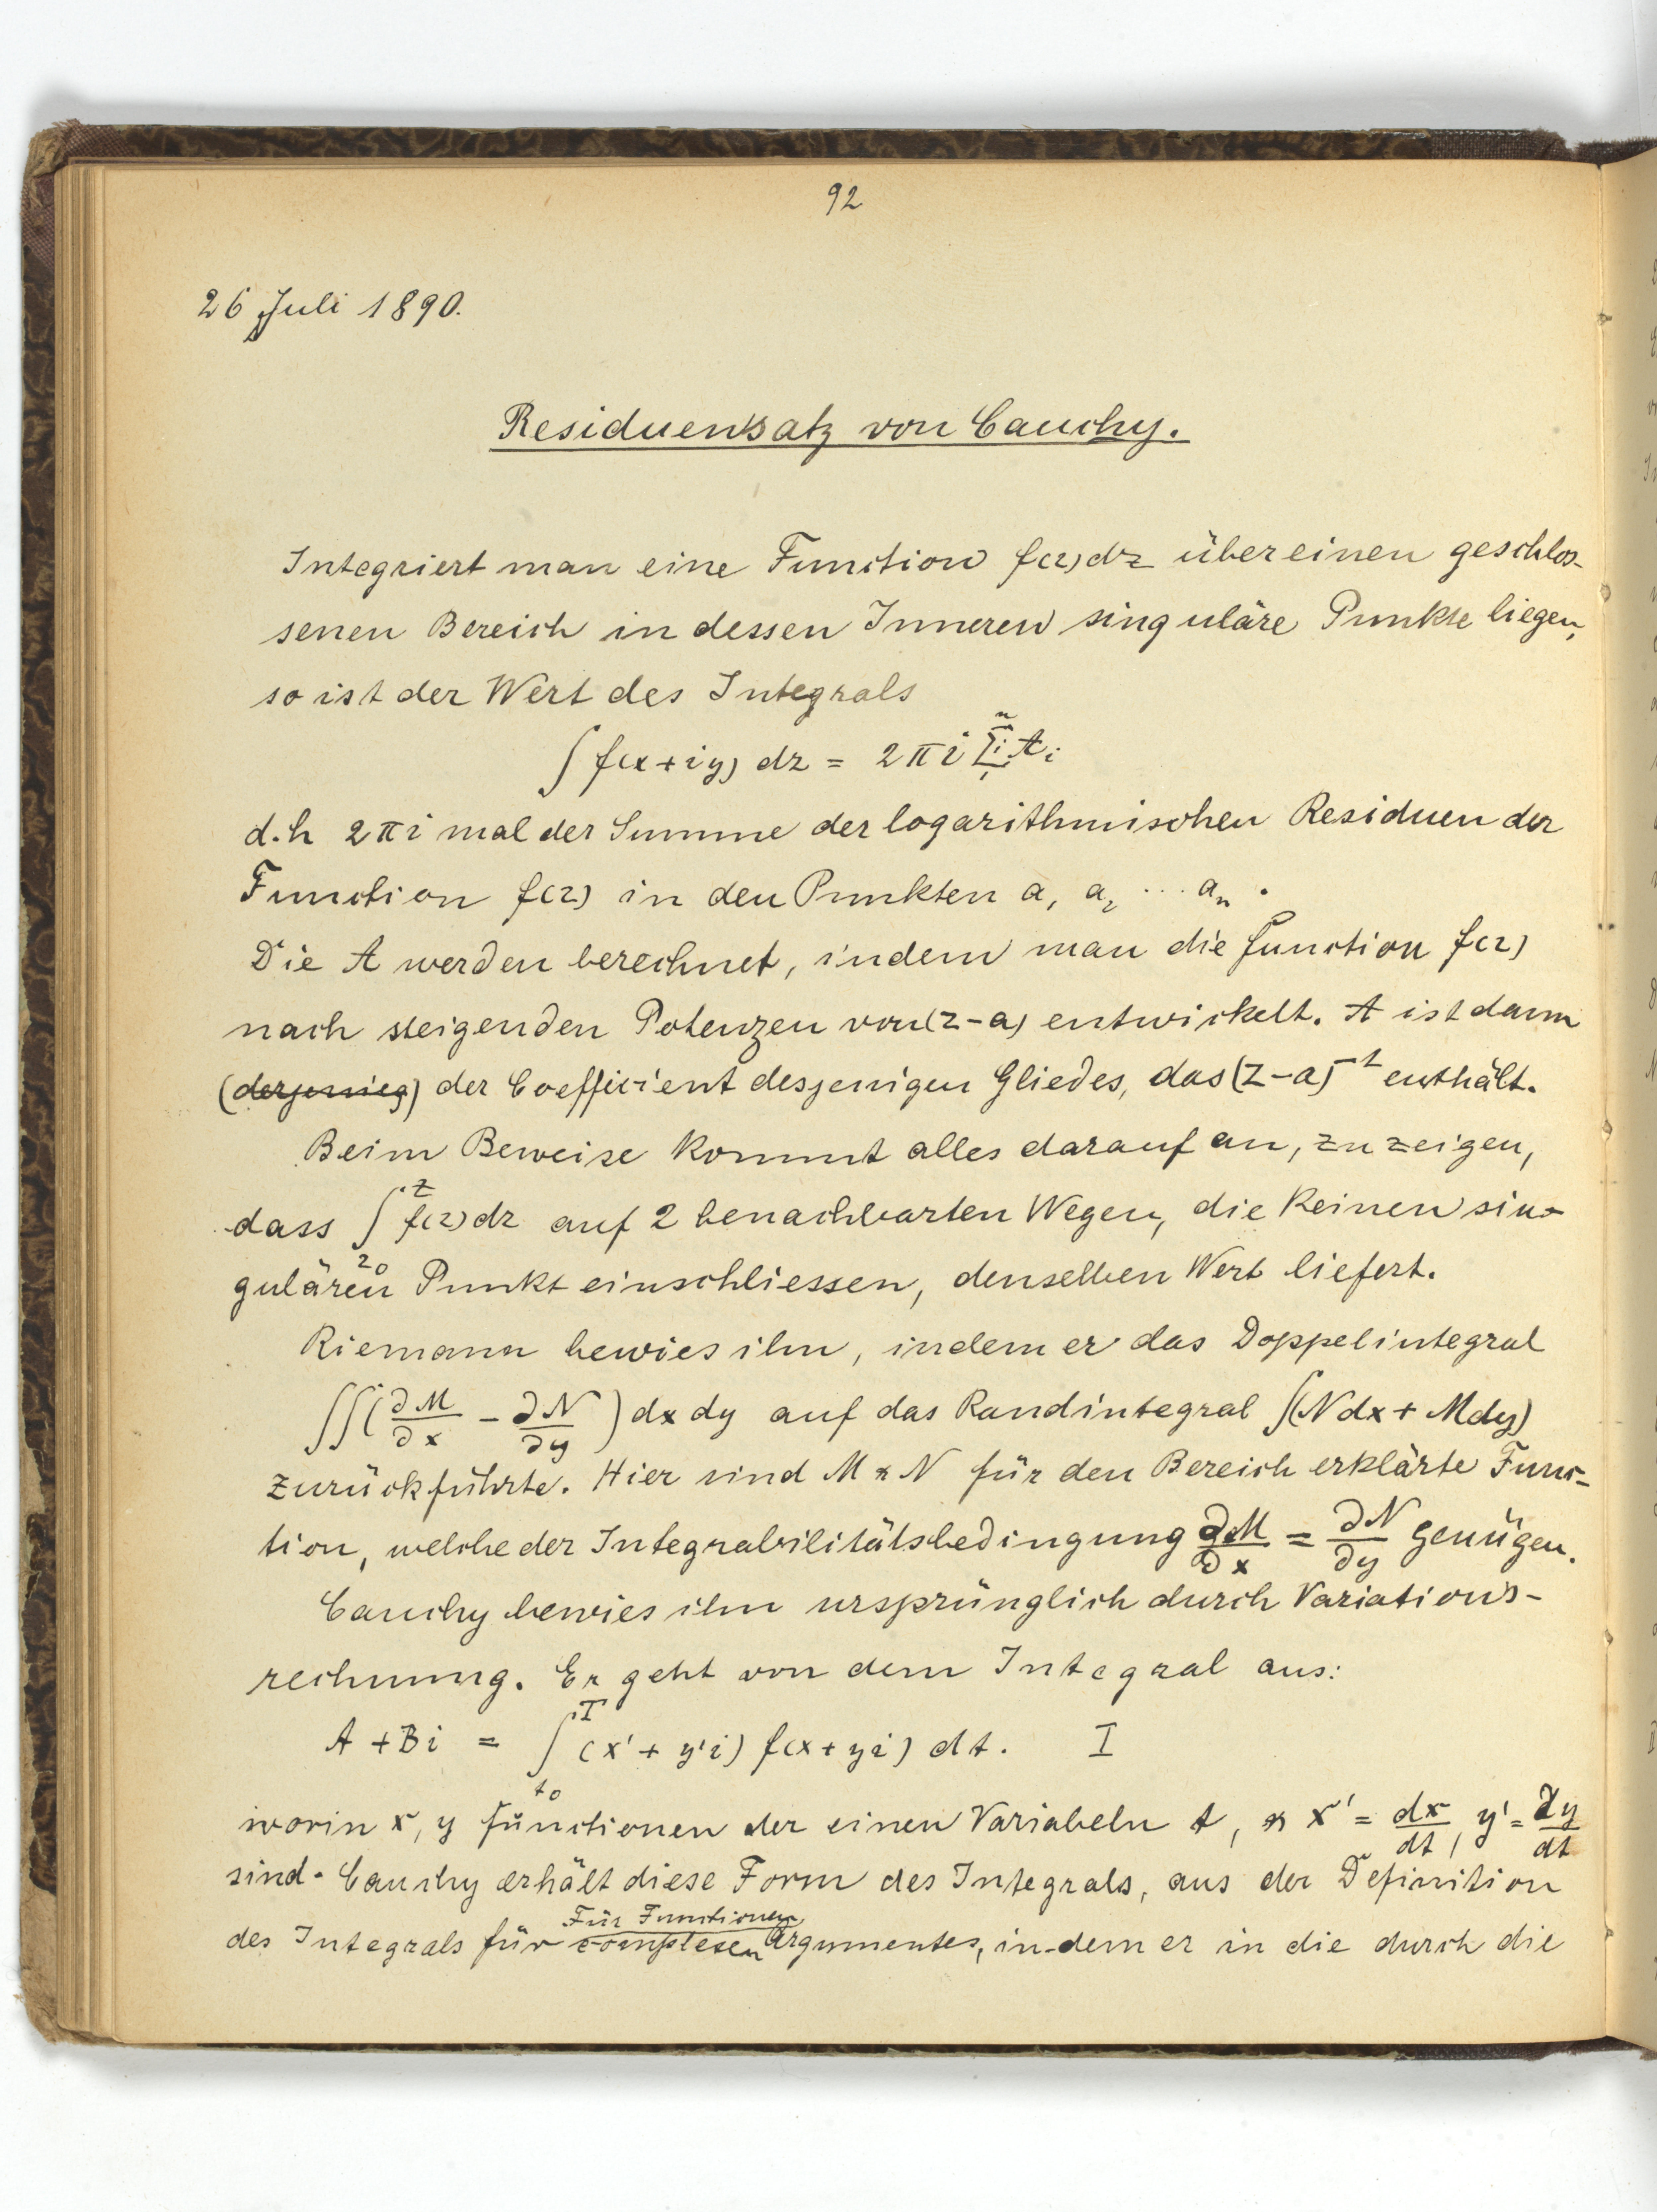 92
26 Juli 1890.
Residuensatz von Cauchy.
Integriert man eine Function f(z)dz über einen geschlos-
senen Bereich in dessen Inneren singuläre Punkte liegen,
so ist der Wert des Integrals
∫ f(x+iy) dz = 2πi Σᵢ₁ⁿ Aᵢ
d.h 2πi mal der Summe der logarithmischen Residuen der
Function f(z) in den Punkten a₁ a₂ ... aₙ.
Die A werden berechnet, indem man die function f(z)
nach steigenden Potenzen von (z-a) entwickelt. A ist dann
(derjenieg) der Coefficient desjenigen Gliedes, das (z-a)⁻¹ enthält.
Beim Beweise kommt alles darauf an, zu zeigen,
dass ∫_{z₀}^{z} f(z)dz auf 2 benachbarten Wegen, die keinen sin-
gulären Punkt einschliessen, denselben Wert liefert.
Riemann bewies ihn, indem er das Doppelintegral
∫∫(∂M/∂x - ∂N/∂y) dx dy auf das Randintegral ∫(Ndx + Mdy)
zurückführte. Hier sind M & N für den Bereich erklärte Func-
tion, welche der Integrabilitätsbedingung ∂M/∂x = ∂N/∂y genügen.
Cauchy bewies ihn ursprünglich durch Variations-
rechnung. Er geht von dem Integral aus:
A + Bi = ∫_{t₀}^{T} (x' + y'i) f(x + yi) dt. I
worin x, y functionen der einen Variabeln t, & x' = dx/dt, y' = dy/dt
sind. Cauchy erhält diese Form des Integrals, aus der Definition
Für Functionen
des Integrals für complexen Argumentes, in-dem er in die durch die